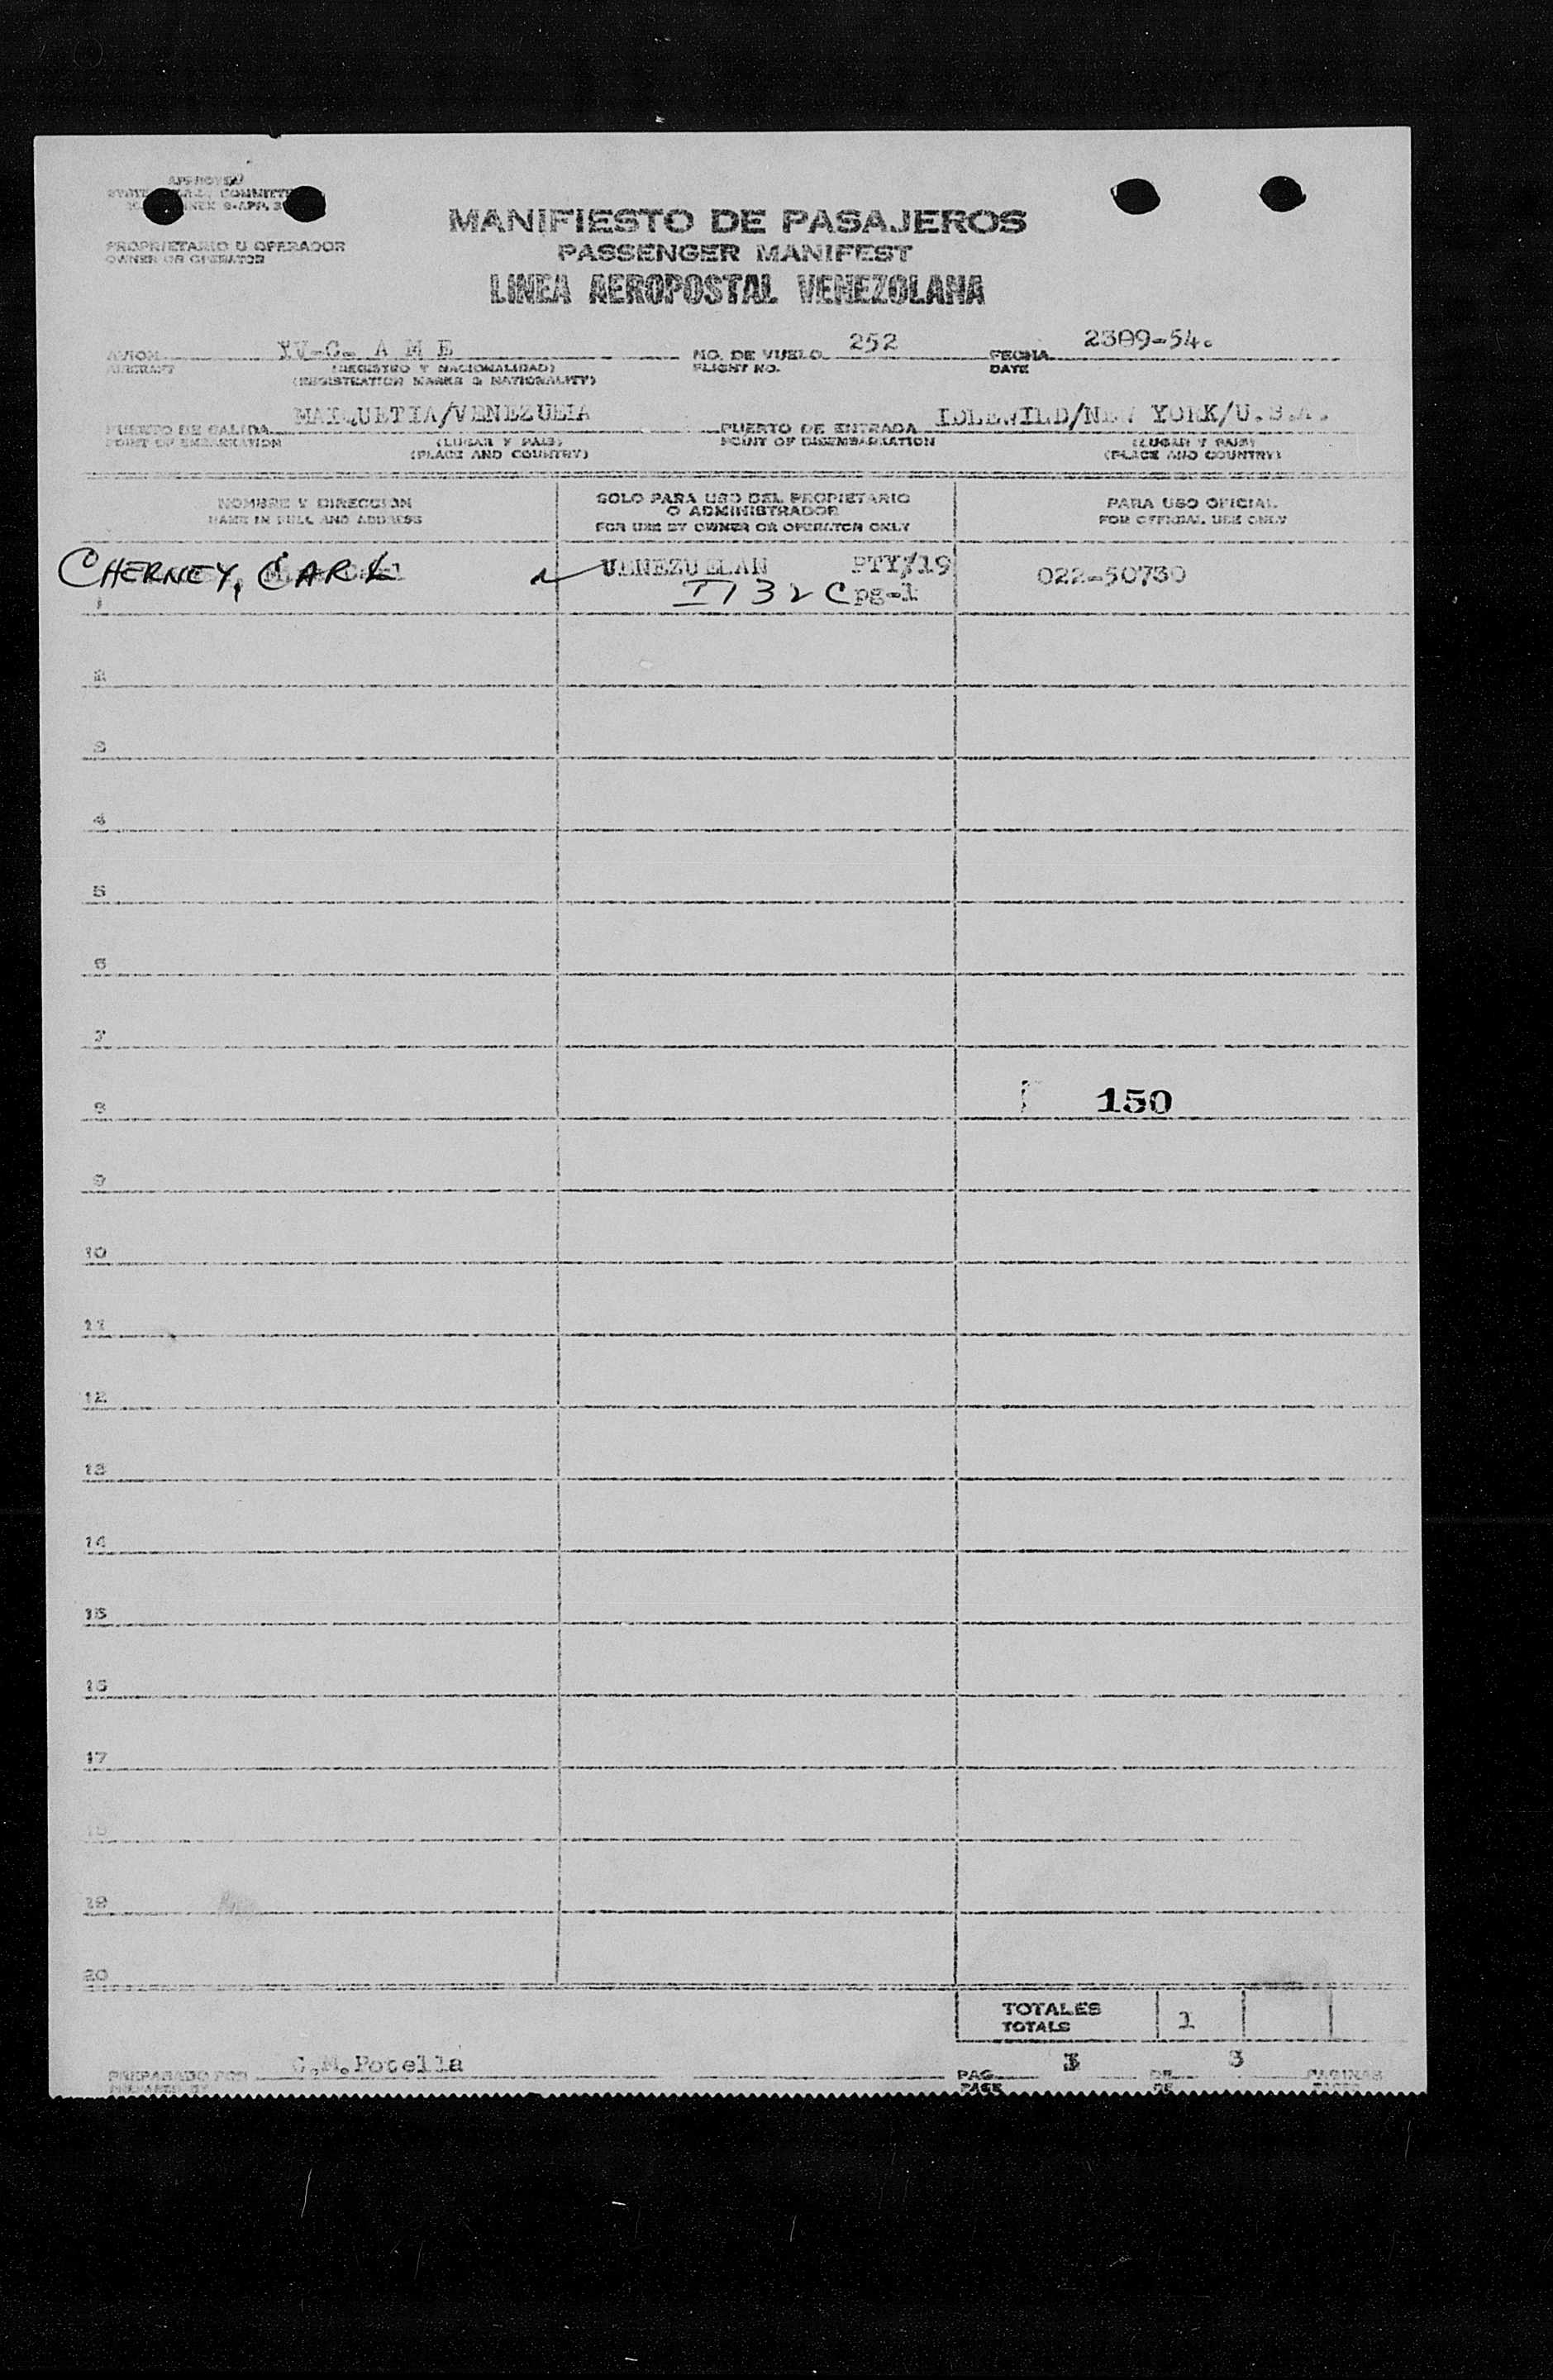 APPROVED
STATE COMMITTEE
ANNEX 9-APP. 3
MANIFIESTO DE PASAJEROS
PROPRIETARIO U OPERADOR
OWNER OR OPERATOR
PASSENGER MANIFEST
LINEA AEROPOSTAL VENEZOLANA
AVION YV-C- A M E NO. DE VUELO 252 FECHA 2309-54.
AIRCRAFT (REGISTRO Y NACIONALIDAD) FLIGHT NO. DATE
(REGISTRATION MARKS & NATIONALITY)
PUERTO DE SALIDA MAIQUETIA/VENEZUEIA PUERTO DE ENTRADA IDLEWILD/NEW YORK/U.S.A.
POINT OF EMBARKATION (LUGAR Y PAIS) POINT OF DISEMBARKATION (LUGAR Y PAIS)
(PLACE AND COUNTRY) (PLACE AND COUNTRY)
NOMBRE Y DIRECCION SOLO PARA USO DEL PROPIETARIO PARA USO OFICIAL
O ADMINISTRADOR
NAME IN FULL AND ADDRESS FOR USE BY OWNER OR OPERATOR ONLY FOR OFFICIAL USE ONLY
CHERNEY, CARL VENEZUELAN PTY/19 022-50730
1 pg-1
2
3
4
5
6
7
8 150
9
10
11
12
13
14
15
16
17
18
19
20
TOTALES 1
TOTALS
PREPARADO POR C.M.Potella PAG. 3 DE 3 PAGINAS
PREPARED BY PAGE OF PAGES